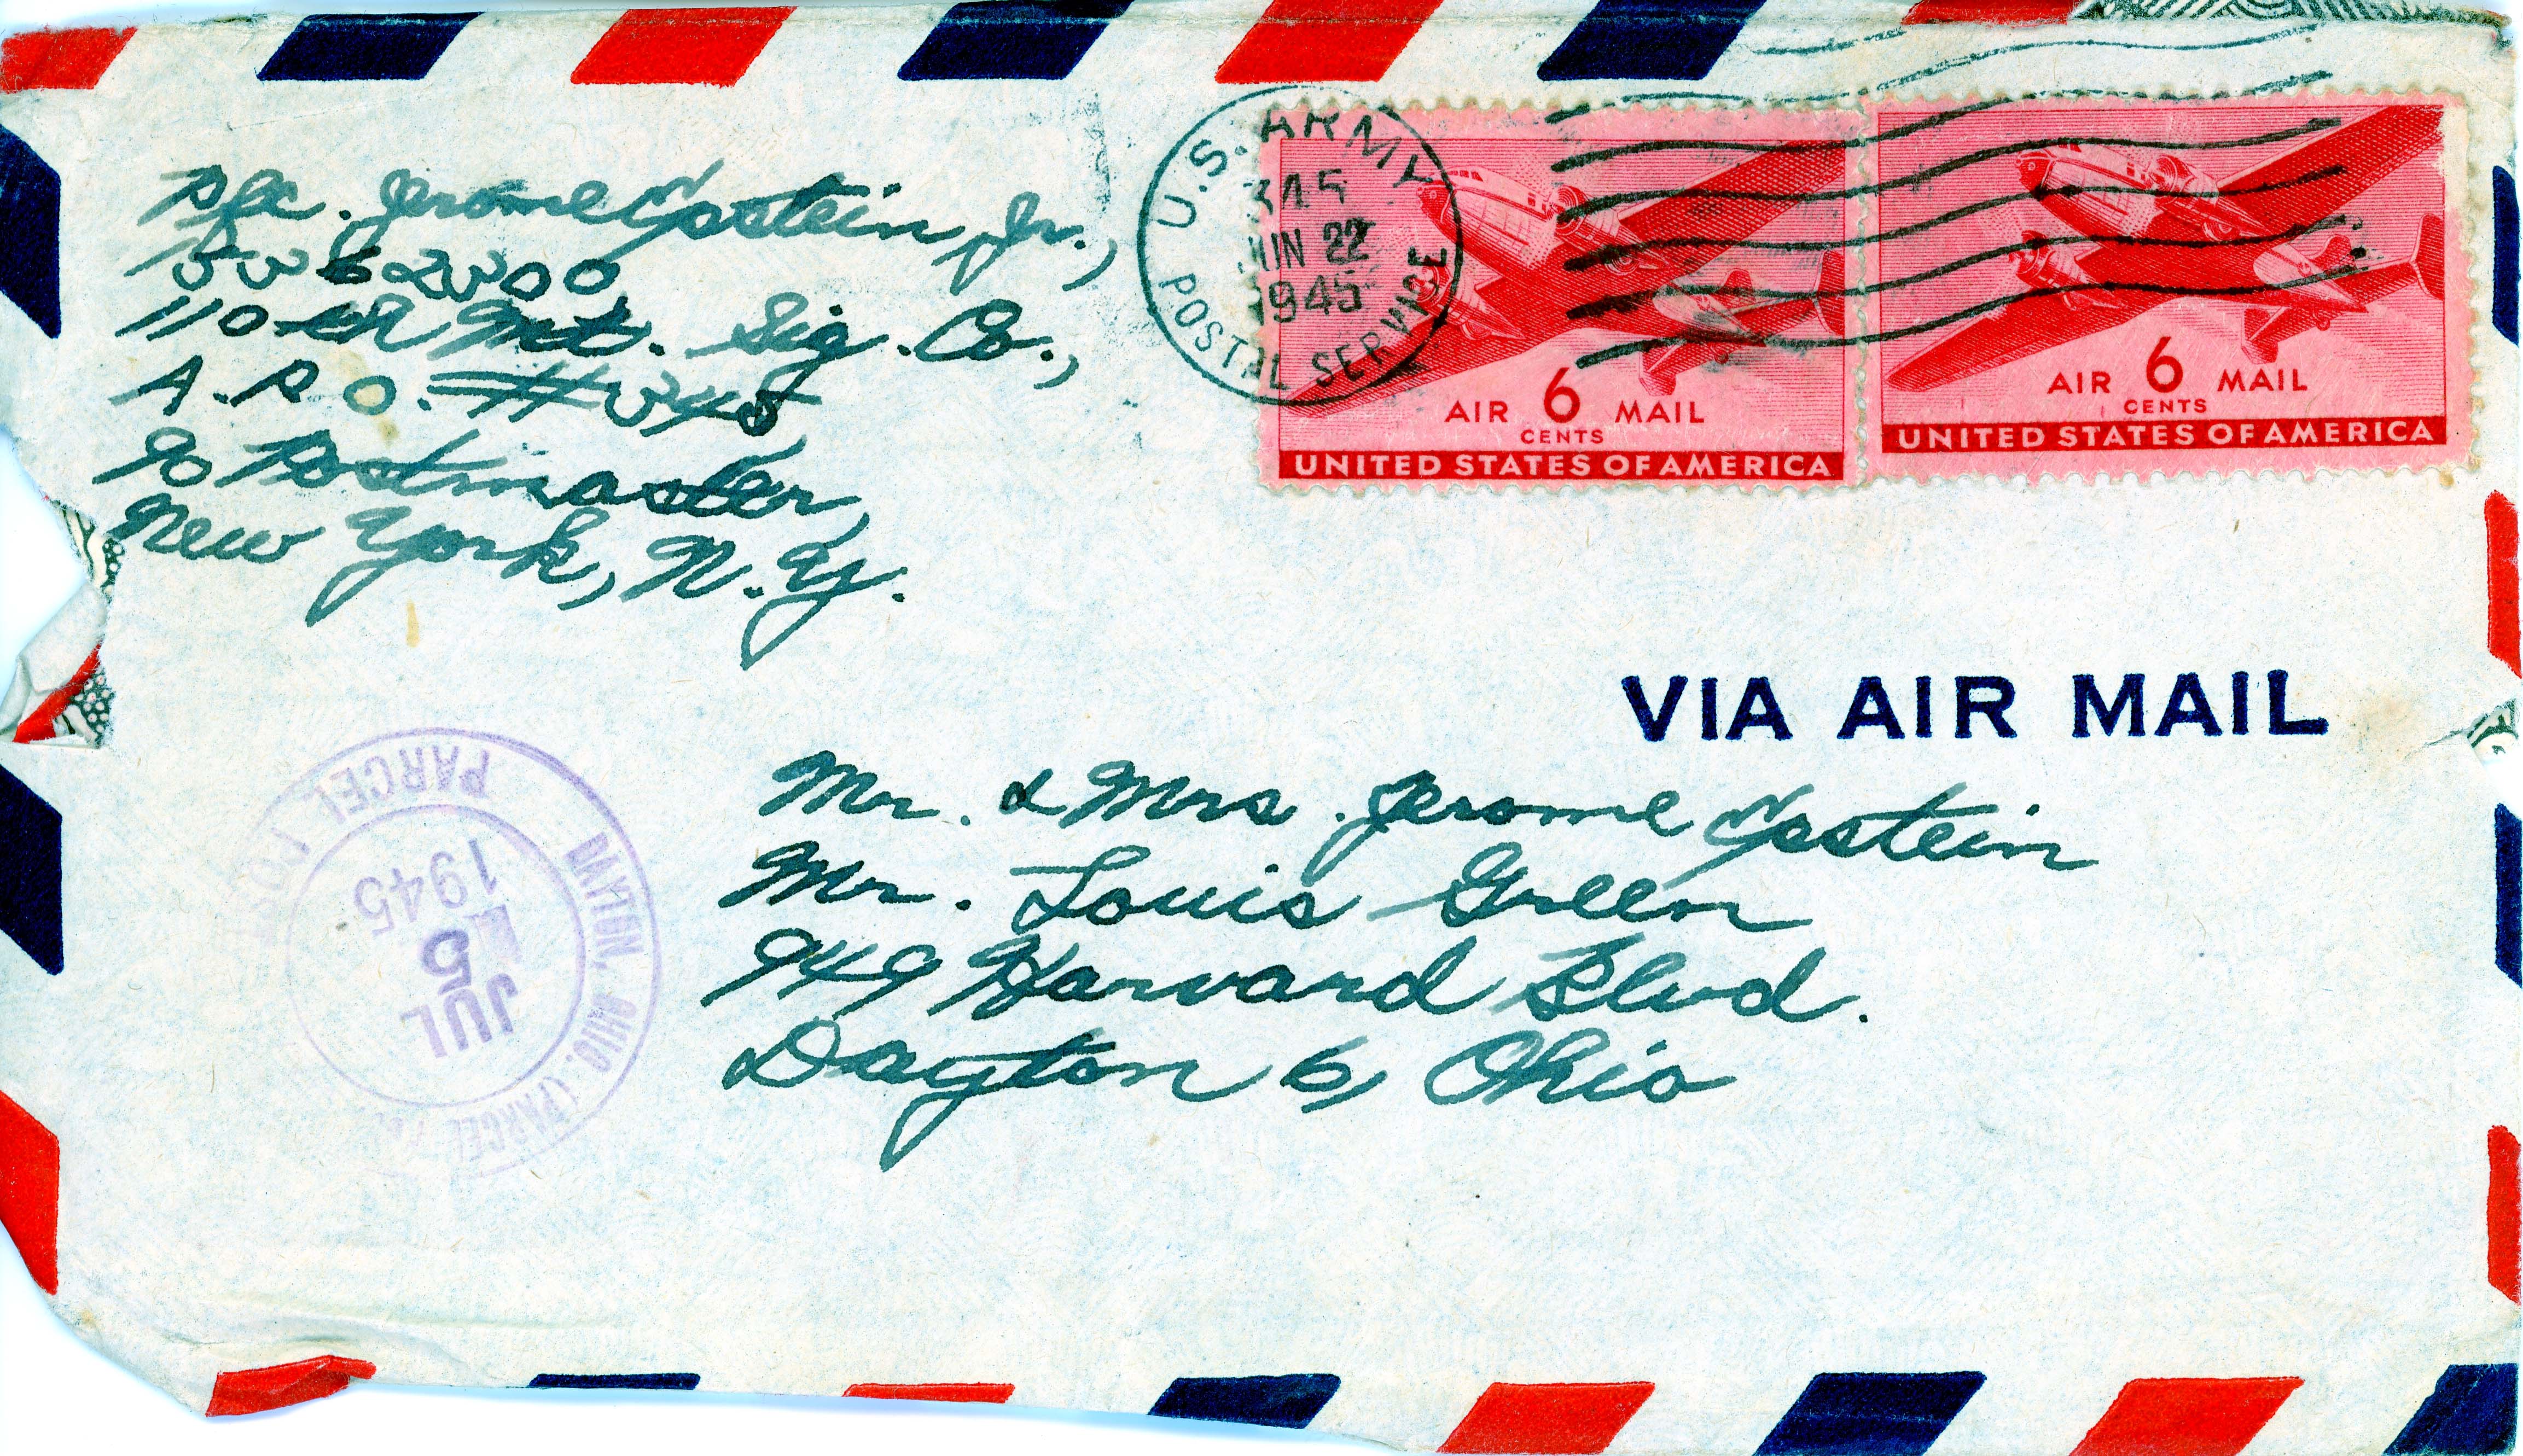 Pfc. Jerome Epstein, Jr.,
110th Mt. Sig. Co.,
A.P.O. #345
c/o Postmaster,
New York, N.Y.
U.S. ARMY
JUN 22
1945
POSTAL SERVICE
AIR 6 MAIL
CENTS
UNITED STATES OF AMERICA
AIR 6 MAIL
CENTS
UNITED STATES OF AMERICA
VIA AIR MAIL
Mr. & Mrs. Jerome Epstein
Mr. Louis Green
949 Harvard Blvd.
Dayton 6, Ohio
DAYTON, OHIO. (PARCEL
PARCEL POST
JUL
5
1945